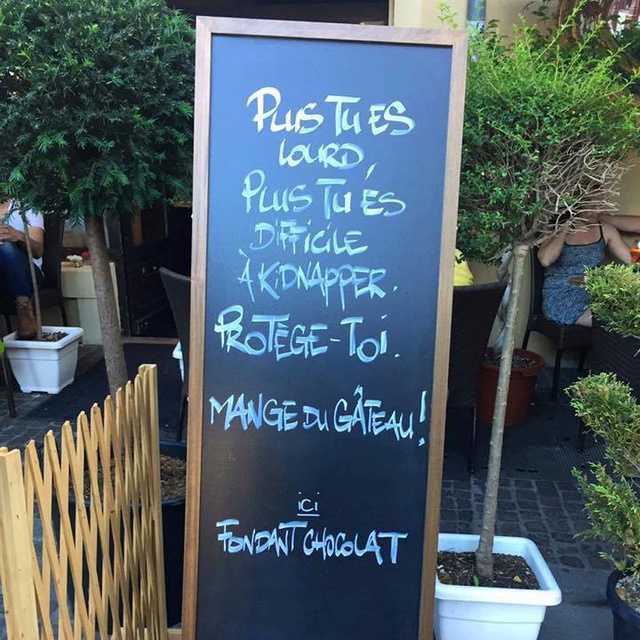 PLUS TU ES
LOURD,
PLUS TU ES
DIFFICILE
À KIDNAPPER.
PROTÈGE-TOI.
MANGE DU GÂTEAU!
ICI
FONDANT CHOCOLAT